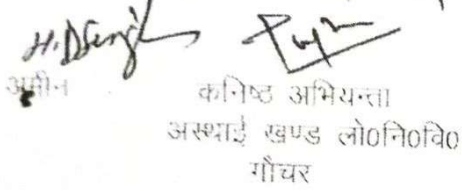 H.D.Singh
अमीन
कनिष्ठ अभियन्ता
अस्थाई खण्ड लो0नि0वि0
गौचर